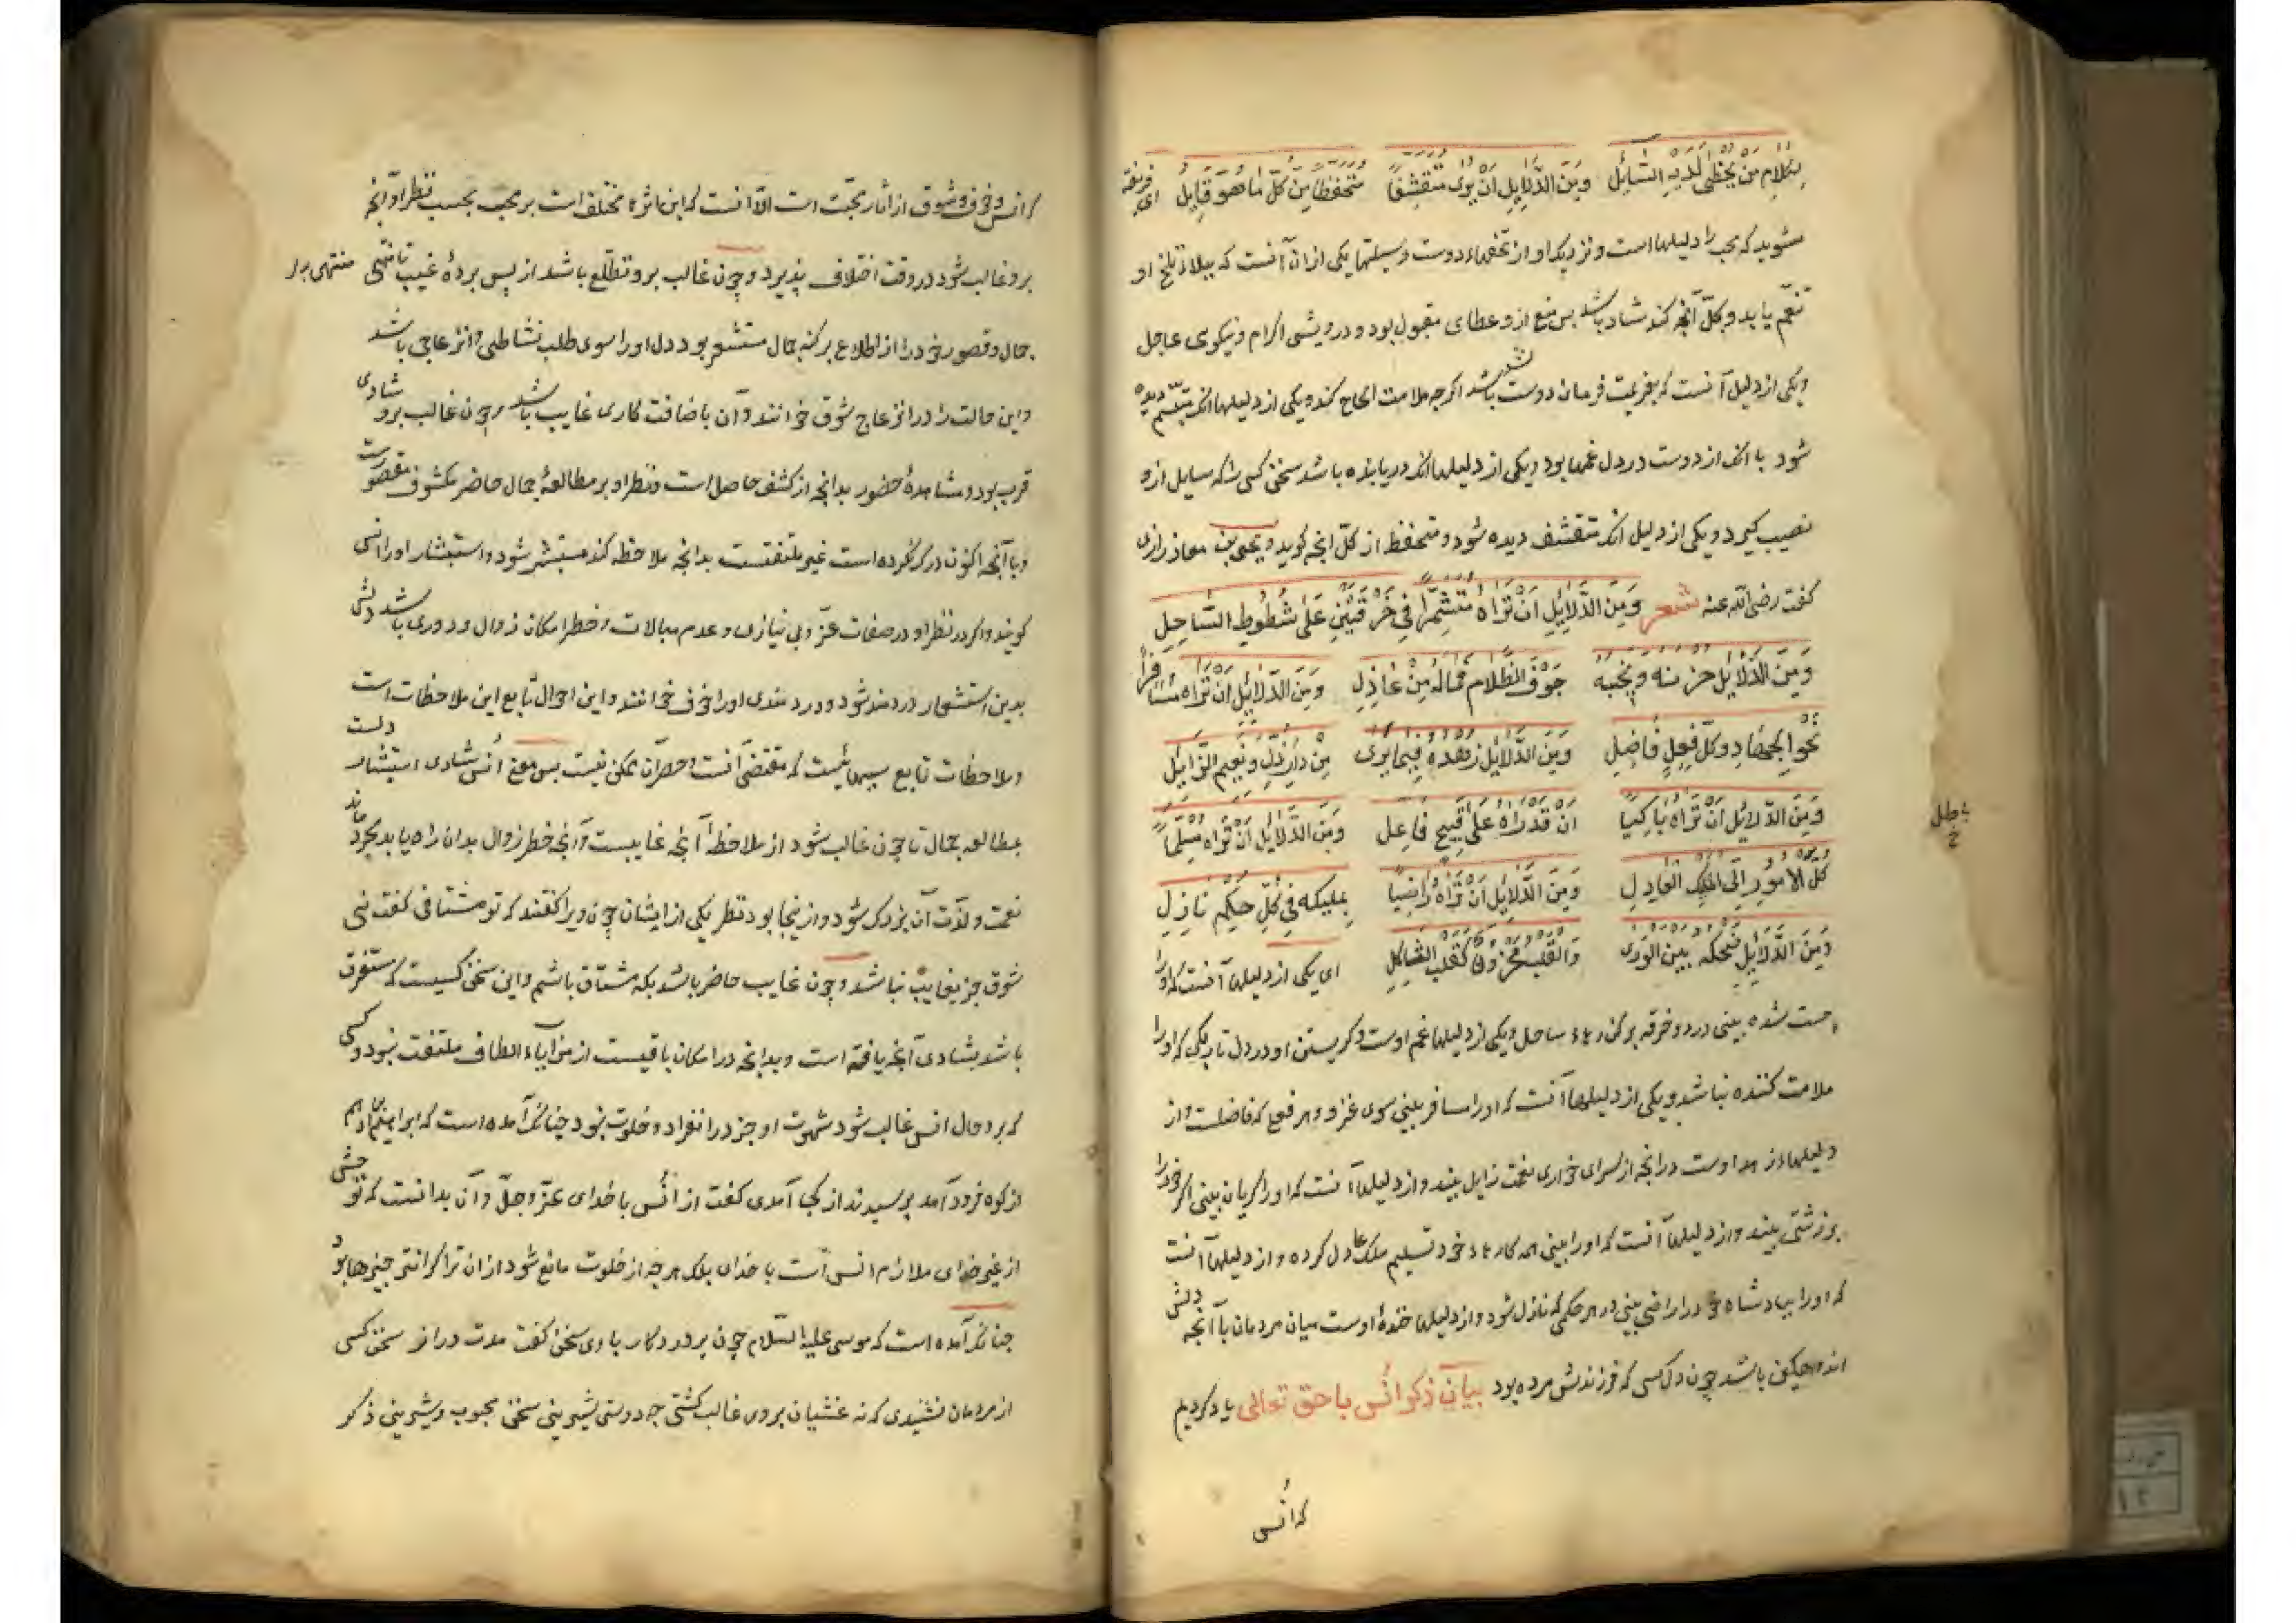 بکلام من یحظی لدیه السائل ومن الدلایل ان یری متقشفا متحفظا من کل ما هو قایل ای فریفته
مشوید که محب را دلیلهاست و نزدیک او از تحفهاء دوست وسیلتها یکی از ان آنست که ببلاء تلخ او
تنعم یابد و بکل آنچه کند شاد باشد پس منع ازو عطای مقبول بود و درویشی اکرام و نیکوی عاجل
ویکی از دلیل آنست که بعزیمت فرمان دوست باشد اگرچه ملامت الحاح کند ویکی از دلیلها آنکه متبسم دیده
شود با آنکه از دوست در دل غمها بود ویکی از دلیلها آنکه دریابنده باشد سخن کسی را که سایل ازو
نصیب گیرد ویکی از دلیل آنکه متقشف دیده شود و متحفظ از کل انچه گوید و یحیی بن معاذ رازی
گفت رضی الله عنه شعر وَمِنَ الدَّلَایِلِ اَنْ تَرَاهُ مُتَشَمِّرًا فِی خِرْقَتَیْنِ عَلَی شُطُوطِ السَّاحِلِ
وَمِنَ الدَّلَایِلِ حزنه و نحیبه جَوْفَ الظَّلَامِ فَمَالَهُ مِنْ عَاذِلِ وَمِنَ الدَّلَایِلِ اَنْ تَرَاهُ مُسَافِرًا
نَحْوَ الْجِهَادِ وَکُلِّ فِعْلٍ فَاضِلِ وَمِنَ الدَّلَایِلِ زُهْدُهُ فِیمَا یَرَی مِنْ دَارِ ذُلٍّ وَنَعِیمِ الزَّایِلِ
وَمِنَ الدَّلَایِلِ اَنْ تَرَاهُ بَاکِیًا اَنْ قَدْ رَاهُ عَلَی قَبِیحِ فَاعِلِ وَمِنَ الدَّلَایِلِ اَنْ تَرَاهُ مُسَلِّمًا
باطل خ
کُلَّ الْاُمُورِ اِلَی الْمَلِکِ الْعَادِلِ وَمِنَ الدَّلَایِلِ اَنْ تَرَاهُ رَاضِیًا بِمَلِیکِهِ فِی کُلِّ حُکْمٍ نَازِلِ
وَمِنَ الدَّلَایِلِ ضحکه بَیْنَ الْوَرَی وَالْقَلْبُ مَحْزُونٌ کَقَلْبِ الثَّاکِلِ ای یکی از دلیلها آنست که اورا
چست شده بینی در دو خرقه بر کنارهاء ساحل ویکی از دلیلها غم اوست و گریستن او در دل تاریکی که اورا
ملامت کننده نباشد ویکی از دلیلها آنست که اورا مسافر بینی سوی غزو و هر فعل که فاضلست و از
دلیلها زهد اوست در انچه از سرای خواری و نعمت زایل بیند و از دلیلها آنست که اورا گریان بینی اگر خود را
بر زشتی بیند و از دلیلها آنست که اورا بینی همه کارهاء خود تسلیم ملک عادل کرده و از دلیلها آنست
که اورا بپادشاه خود راضی بینی در هر حکمی که نازل شود و از دلیلها خندهٔ اوست میان مردمان با آنچه دلش
اندوهگین باشد چون دل کسی که فرزندش مرده بود بیان ذکر اُنس با حق تعالی یاد کردیم
که اُنس
که انس و خوف و شوق از آثار محبت است الّا آنست که این اثرها مختلف است بر محب بحسب نظر او و آنچه
برو غالب شود در وقت اختلاف پذیرد و چون غالب برو تطلّع باشد از پس پردهٔ غیب تا منتهی منتهی برا
جمال و قصور خود را از اطلاع بر کنه جمال مستشعر بود دل او را سوی طلب نشاطی و انزعاجی باشد
و این حالت را در انزعاج شوق خوانند و آن باضافت کاری غایب باشد و چون غالب برو شادی
قرب بود و مشاهدهٔ حضور بدانچه از کشف حاصل است و نظر او بر مطالعهٔ جمال حاضر مکشوف مقصورست
و با آنچه اکنون درک نکرده است غیر ملتفتست بدانچه ملاحظه کند مستبشر شود و استبشار او را انس
گویند و اگر در نظر او در صفات عزّ و بی نیازی و عدم مبالات و خطر امکان زوال و دوری باشد دلش
بدین استشعار دردمند شود و دردمندی او را خوف خوانند و این احوال تابع این ملاحظات است
و ملاحظات تابع سببهائیست که مقتضی آنست و حصر آن ممکن نیست پس معنی اُنس شادی و استبشار دلست
بمطالعه جمال تا چون غالب شود از ملاحظهٔ آنچه غایبست و آنچه خطر زوال بدان راه یابد مجرد ماند
نعمت و لذّت آن بزرگ شود و ازینجا بود نظر یکی از ایشان چون ویرا گفتند که تو مشتاقی گفت نی
شوق جز بغایب نباشد و چون غایب حاضر باشد بکه مشتاق باشم و این سخن کسیست که مستغرق
باشد بشادی آنچه یافته است و بدانچه در امکان باقیست از مزایاء الطاف ملتفت نبود و کسی
که برو حال انس غالب شود شهوت او جز در انفراد و خلوت نبود چنانک آمده است که ابراهیم ادهم
از کوه فرود آمد پرسیدند از کجا آمدی گفت از اُنس با خدای عزّ و جلّ و آن بدانست که توحش
از غیر خدای ملازم انس است با خدای بلک هرچه از خلوت مانع شود از ان ترا گرانتر چیزها بود
چنانک آمده است که موسی علیه السّلام چون پروردگار با وی سخن گفت مدت دراز سخن کسی
از مردمان نشنیدی که نه غشیان بر وی غالب گشتی چه دوستی شیرینی سخن محبوب و شیرینی ذکر